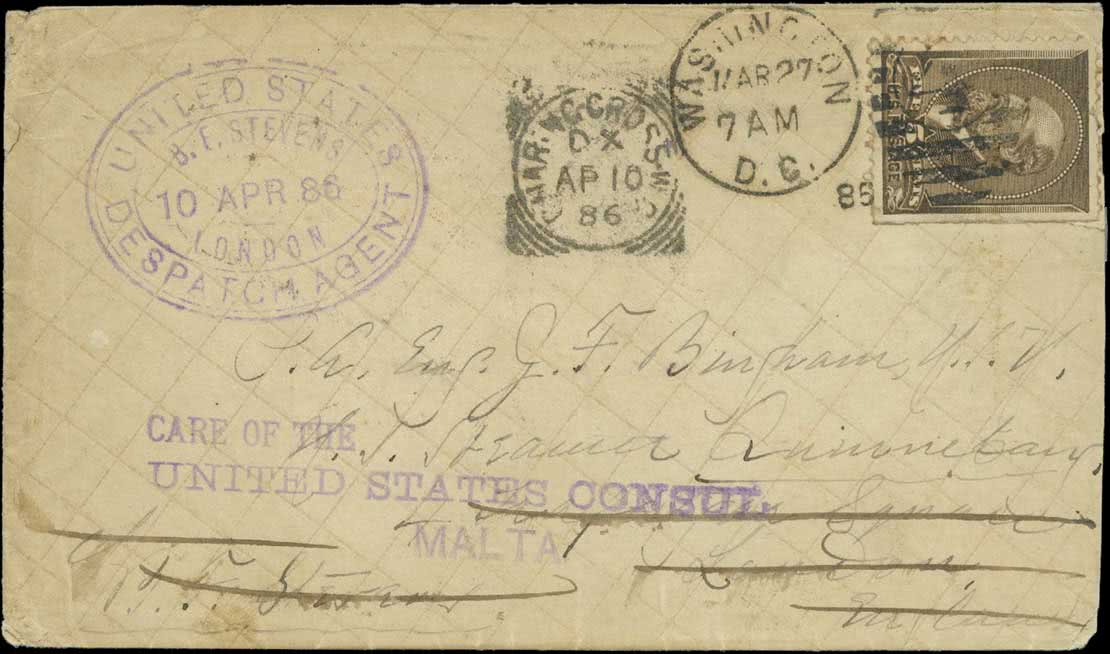 UNITED STATES
B. F. STEVENS
10 APR 86
LONDON
DESPATCH AGENT
CHARING CROSS
DX
AP 10
86
WASHINGTON
MAR 27
7 AM
D. C.
86
P. A. Eng. J. F. Bingham, U.S.N.
CARE OF THE
U. S. Steamer Quinnebaug,
UNITED STATES CONSUL
4 Square
MALTA
London,
B. F. Stevens
England